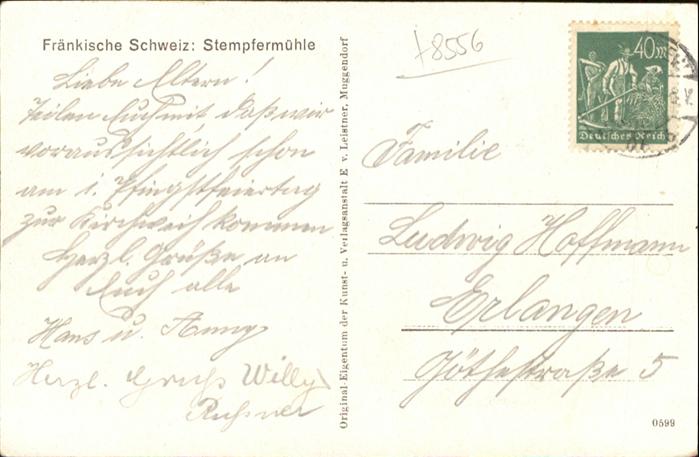 Fränkische Schweiz: Stempfermühle
Liebe Eltern!
Teilen Euch mit daß wir
voraussichtlich schon
am 1. Pfingstfeiertag
zur Kirchweih kommen
Herzl. Grüße an
Euch alle
Hans u. Anny
Herzl. Gruß Willy
Original-Eigentum der Kunst- u. Verlagsanstalt E v. Leistner, Muggendorf
+8556
40 m
Deutsches Reich
Familie
Ludwig Hoffmann
Erlangen
Göthestraße 5
0599